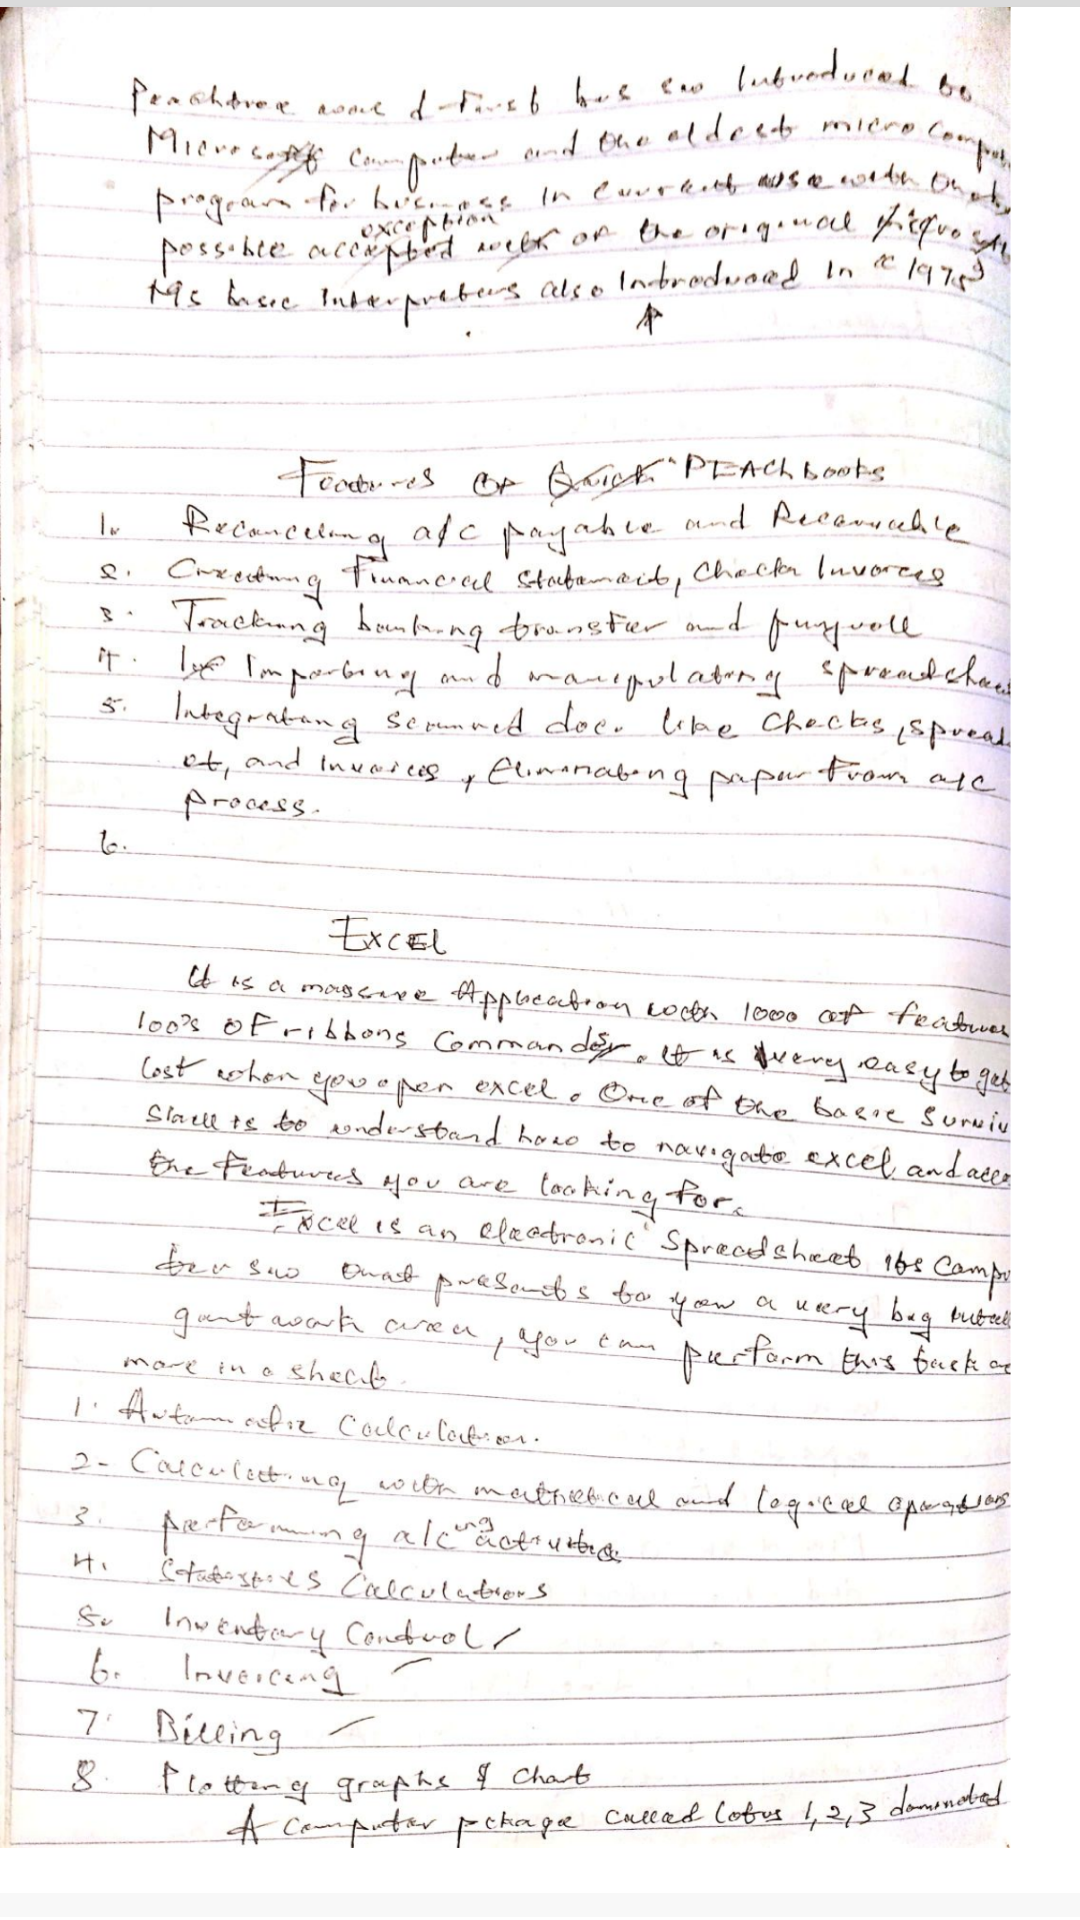 Peachtree was d first bus sw Introduced to
Microsoft Computer and the oldest micro Compu
program for business In current use with that
exception
possible accepted with of the original
Ms basic Interpreters also Introduced In " 1975"
Features OF Quick "PEACh books
1. Reconceling a/c payable and Receivable
2. Creating Financial Statement, Checks Invoices
3. Tracking banking transfer and payroll
4. Importing and manipulating spreadshee
5. Integrating scanned doc. like Checks, spread
et, and Invoices, Eliminating paper From a/c
process.
6.
EXCEL
It is a massive Application with 1000 of features
100's OF ribbons Commands. It is very easy to get
lost when you open excel. One of the basic surviv
skill is to understand how to navigate excel, and acce
the features you are looking for.
Excel is an electronic Spreadsheet its Compu
ter sw that presents to you a very big
gant work area, you can perform this task or
more in a sheet
1. Automatic Calculation.
2- Calculating with mathetical and logical operations
3. performing a/c ing activities
4. Statistics Calculations
5. Inventory Control
6. Invoicing
7. Billing
8. Plotting graphs & Chart
A Computer pckage called lotus 1,2,3 dominated